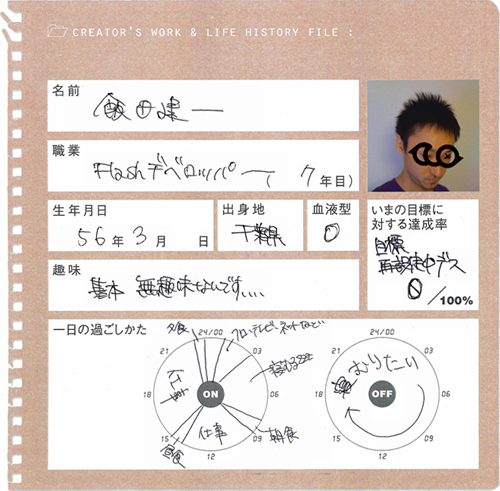 CREATOR'S WORK & LIFE HISTORY FILE :
名前
飯田建一
職業
Flashデベロッパー( 7年目)
生年月日
56年3月 日
出身地
千葉県
血液型
O
いまの目標に
対する達成率
目標
再設定中デス
0/100%
趣味
基本 無趣味なんです....
一日の過ごしかた
夕食
24/00
フロ、テレビ、ネットなどで
21
03
仕事
18
ON
06
仕事
昼食
15
12
09
朝食
24/00
21
03
ねむりたい
18
OFF
06
15
09
12